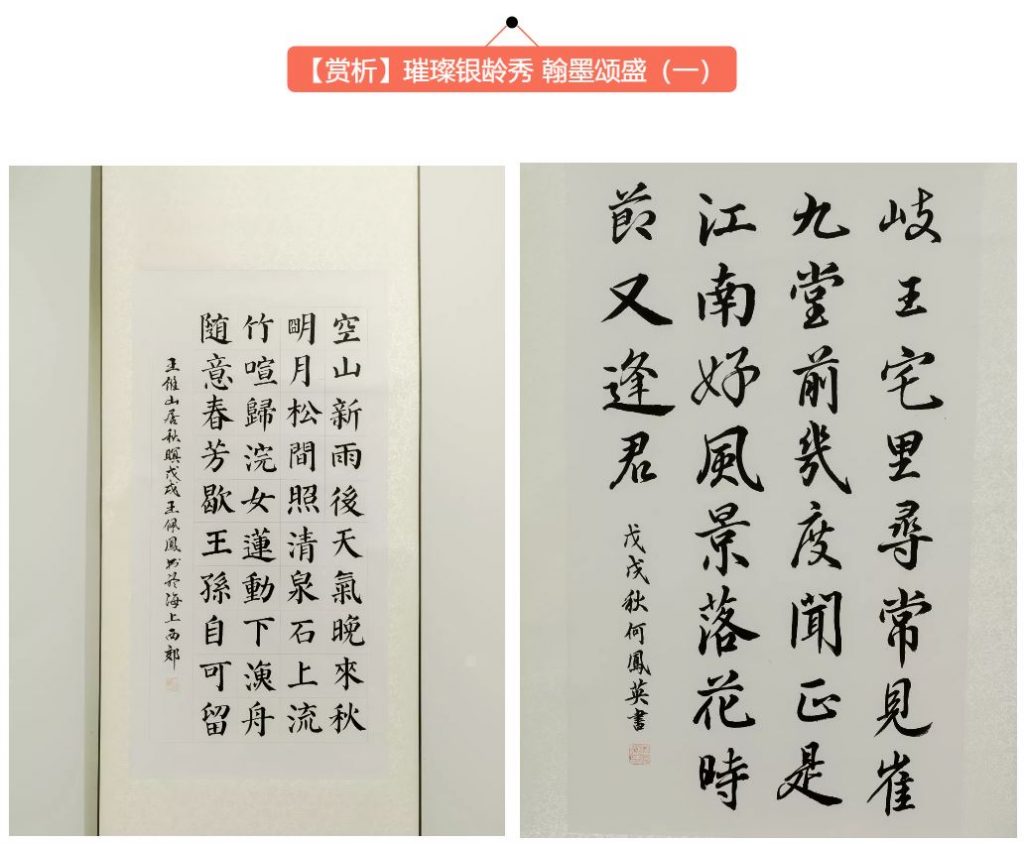 【赏析】璀璨银龄秀 翰墨颂盛（一）
空山新雨後天氣晚來秋
朙月松間照清泉石上流
竹喧歸浣女蓮動下漁舟
随意春芳歇王孫自可留
王維山居秋暝戊戌王佩鳳書於海上西郊
岐王宅里尋常見崔
九堂前幾度聞正是
江南好風景落花時
節又逢君
戊戌秋何鳳英書